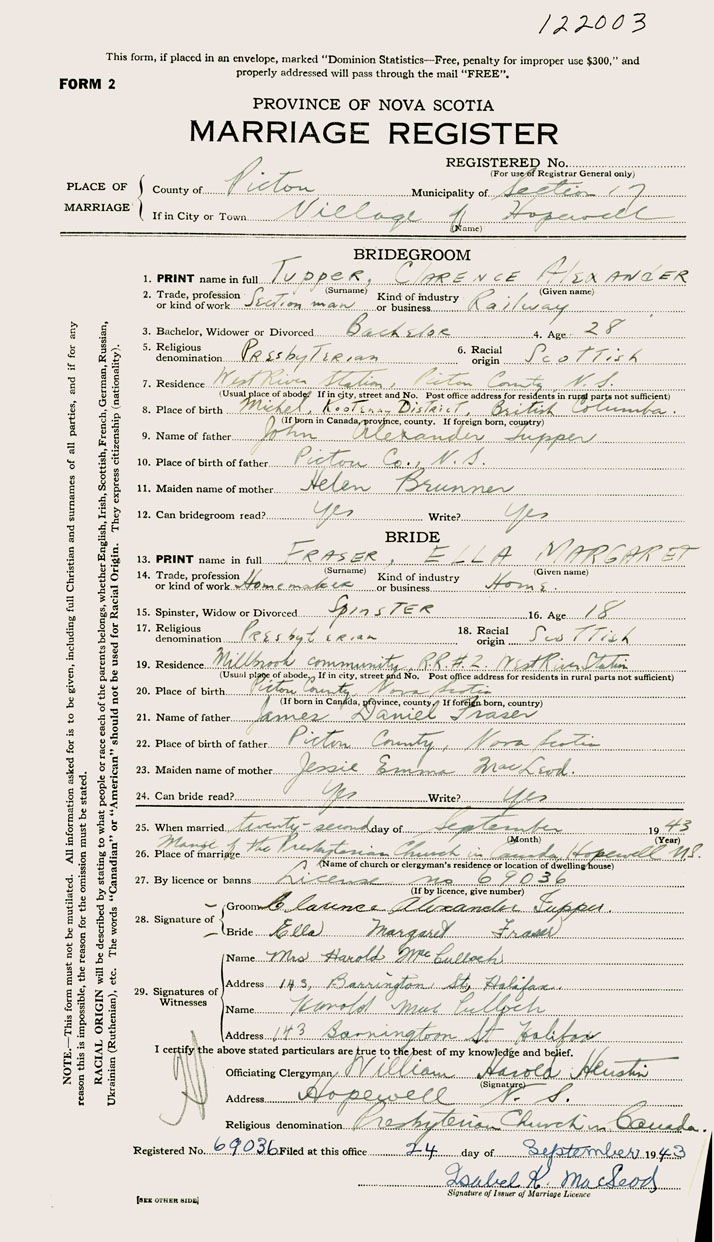 122003
This form, if placed in an envelope, marked "Dominion Statistics—Free, penalty for improper use $300," and
properly addressed will pass through the mail "FREE".
FORM 2
PROVINCE OF NOVA SCOTIA
MARRIAGE REGISTER
REGISTERED No.
(For use of Registrar General only)
PLACE OF MARRIAGE
County of Picton Municipality of Section 17
If in City or Town Village of Hopewell
(Name)
BRIDEGROOM
1. PRINT name in full TUPPER, CLARENCE ALEXANDER
(Surname) (Given name)
2. Trade, profession or kind of work Section man Kind of industry or business Railway
3. Bachelor, Widower or Divorced Bachelor 4. Age 28
5. Religious denomination PRESBYTERIAN 6. Racial origin Scottish
7. Residence West River Station, Picton County, N.S.
(Usual place of abode. If in city, street and No. Post office address for residents in rural parts not sufficient)
8. Place of birth Michel, Kootenay District, British Columba.
(If born in Canada, province, county. If foreign born, country)
9. Name of father John Alexander Tupper
10. Place of birth of father Picton Co., N.S.
11. Maiden name of mother Helen Brunner
12. Can bridegroom read? Yes Write? Yes
BRIDE
13. PRINT name in full FRASER, ELLA MARGARET
(Surname) (Given name)
14. Trade, profession or kind of work Homemaker Kind of industry or business Home.
15. Spinster, Widow or Divorced Spinster 16. Age 18
17. Religious denomination Presbyterian 18. Racial origin Scottish
19. Residence Millbrook community, R.R.#2. West River Station
(Usual place of abode. If in city, street and No. Post office address for residents in rural parts not sufficient)
20. Place of birth Picton County, Nova Scotia
(If born in Canada, province, county. If foreign born, country)
21. Name of father James Daniel Fraser
22. Place of birth of father Picton County, Nova Scotia
23. Maiden name of mother Jessie Emma MacLeod.
24. Can bride read? Yes Write? Yes
25. When married twenty-second day of September 1943
(Month) (Year)
26. Place of marriage Manse of the Presbyterian Church in Canada, Hopewell N.S.
(Name of church or clergyman's residence or location of dwelling house)
27. By licence or banns License no 69036
(If by licence, give number)
28. Signature of
Groom Clarence Alexander Tupper.
Bride Ella Margaret Fraser
29. Signatures of Witnesses
Name Mrs Harold MacCulloch
Address 143, Barrington St, Halifax.
Name Harold MacCulloch
Address 143 Barrington St Halifax
I certify the above stated particulars are true to the best of my knowledge and belief.
Officiating Clergyman William Harold
(Signature)
Address Hopewell N.S.
Religious denomination Presbyterian Church in Canada.
Registered No. 69036 Filed at this office 24 day of September 1943
Isabel K. MacLeod
Signature of Issuer of Marriage Licence
[SEE OTHER SIDE]
NOTE.—This form must not be mutilated. All information asked for is to be given, including full Christian and surnames of all parties, and if for any
reason this is impossible, the reason for the omission must be stated.
RACIAL ORIGIN will be described by stating to what people or race each of the parents belongs, whether English, Irish, Scottish, French, German, Russian,
Ukrainian (Ruthenian), etc. The words "Canadian" or "American" should not be used for Racial Origin. They express citizenship (nationality).